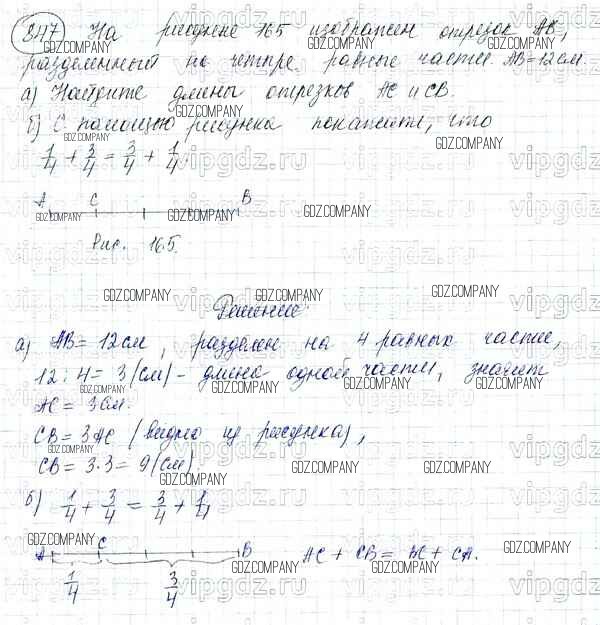 847 На рисунке 165 изображен отрезок АВ,
разделенный на четыре равные части. АВ=12см.
а) Найдите длины отрезков АС и СВ.
б) С помощью рисунка покажите, что
1/4 + 3/4 = 3/4 + 1/4.
А С В
Рис. 165.
Решение:
а) АВ=12см, разделен на 4 равных части,
12:4=3(см) - длина одной части, значит
АС=3см.
СВ=3АС (видно из рисунка),
СВ=3·3=9(см).
б) 1/4 + 3/4 = 3/4 + 1/4
А С В АС + СВ = ВС + СА.
1/4 3/4
GDZ.COMPANY
vipgdz.ru